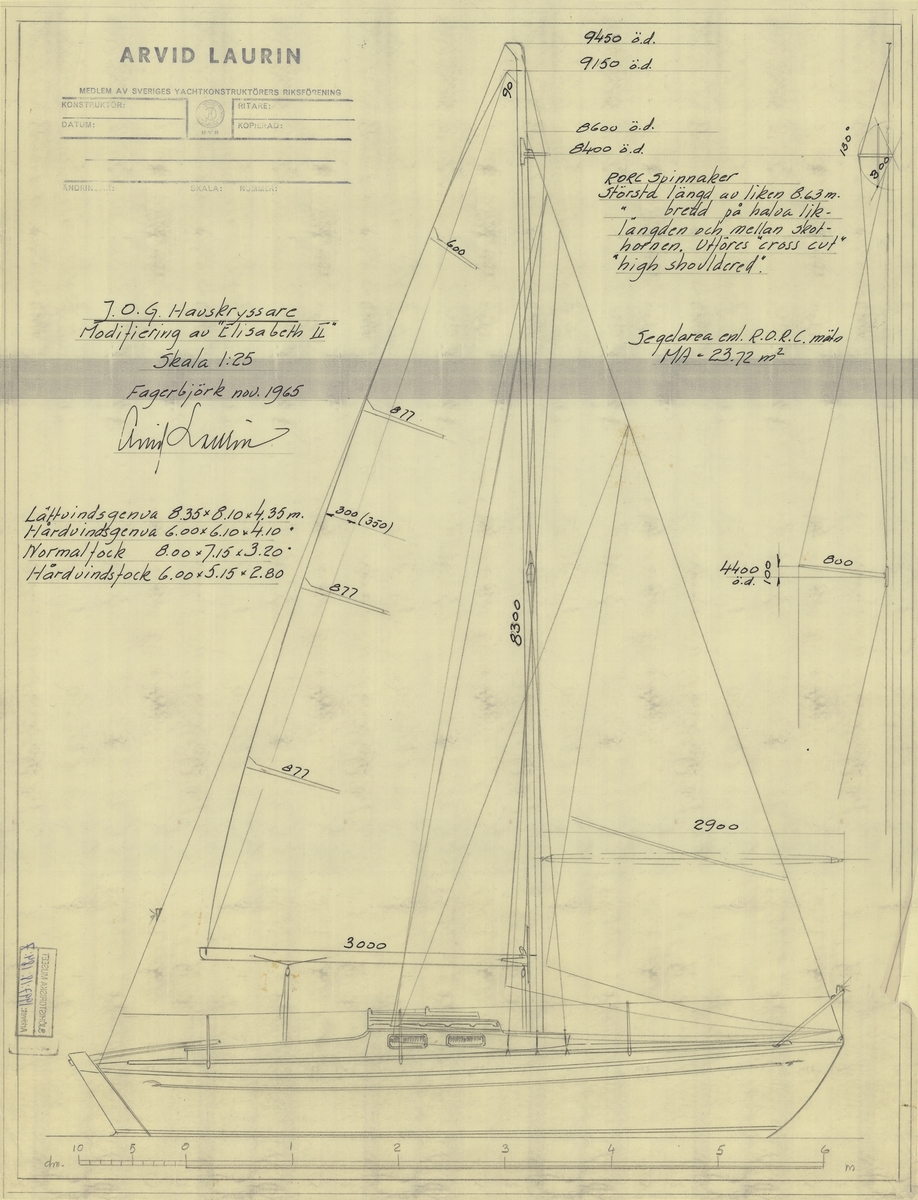 ARVID LAURIN
MEDLEM AV SVERIGES YACHTKONSTRUKTÖRERS RIKSFÖRENING
KONSTRUKTÖR:
RITARE:
DATUM:
SKALA:
9450 ö.d.
9150 ö.d.
90
8600 ö.d.
8400 ö.d.
130°
300
RORC Spinnaker
Största längd av liken 8.63 m.
" bredd på halva lik-
längden och mellan skot-
hornen. Utföres "cross cut"
"high shouldered".
600
J.O.G. Havskryssare
Modifiering av "Elisabeth II"
Skala 1:25
Fagerbjörk nov. 1965
Arvid Laurin
Segelarea enl. R.O.R.C. mätn
MA = 23.72 m²
877
Lättvindsgenua 8.35 x 8.10 x 4.35 m.
Hårdvindsgenua 6.00 x 6.10 x 4.10 "
Normalfock 8.00 x 7.15 x 3.20 "
Hårdvindsfock 6.00 x 5.15 x 2.80
300 (350)
877
8300
4400
ö.d.
100
800
877
2900
3000
10 5 0 1 2 3 4 5 6
dm.
m